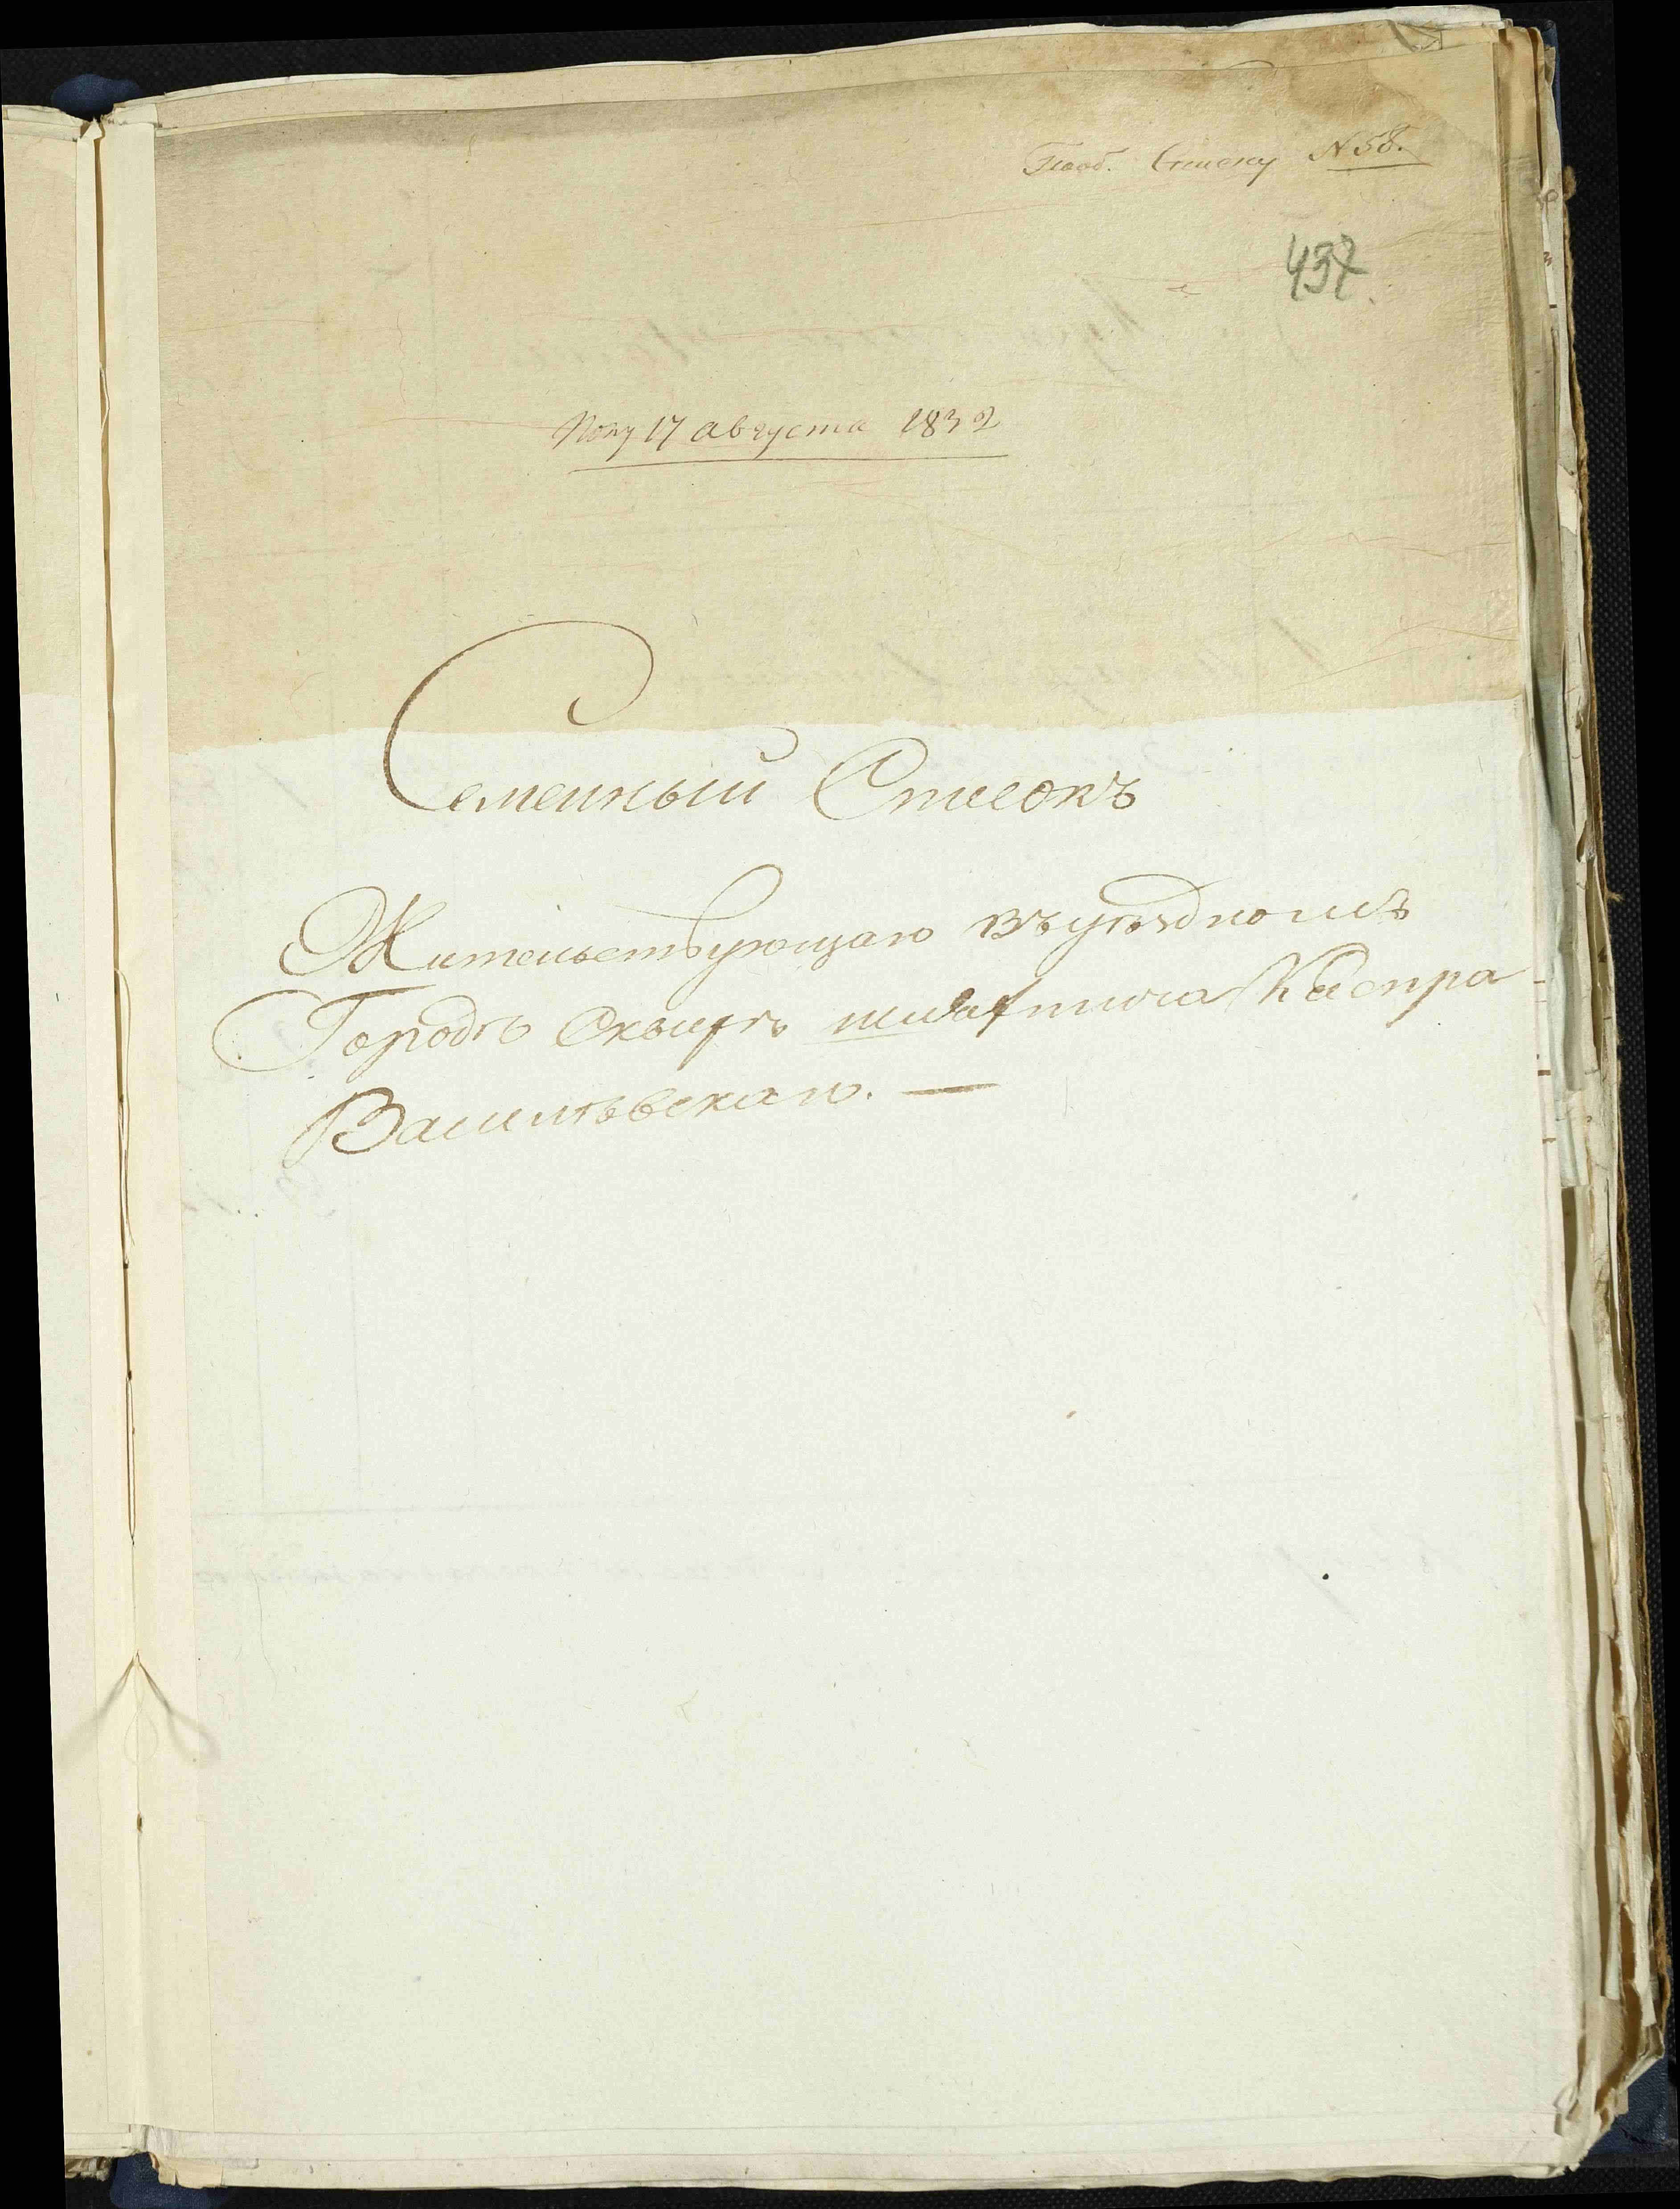 Списку N 58.
437.
17 августа 1832
Семейный Списокъ
Жительствующаго въ уѣздномъ
Городѣ Сквирѣ шляхтича Каспра
Василѣвскаго. —